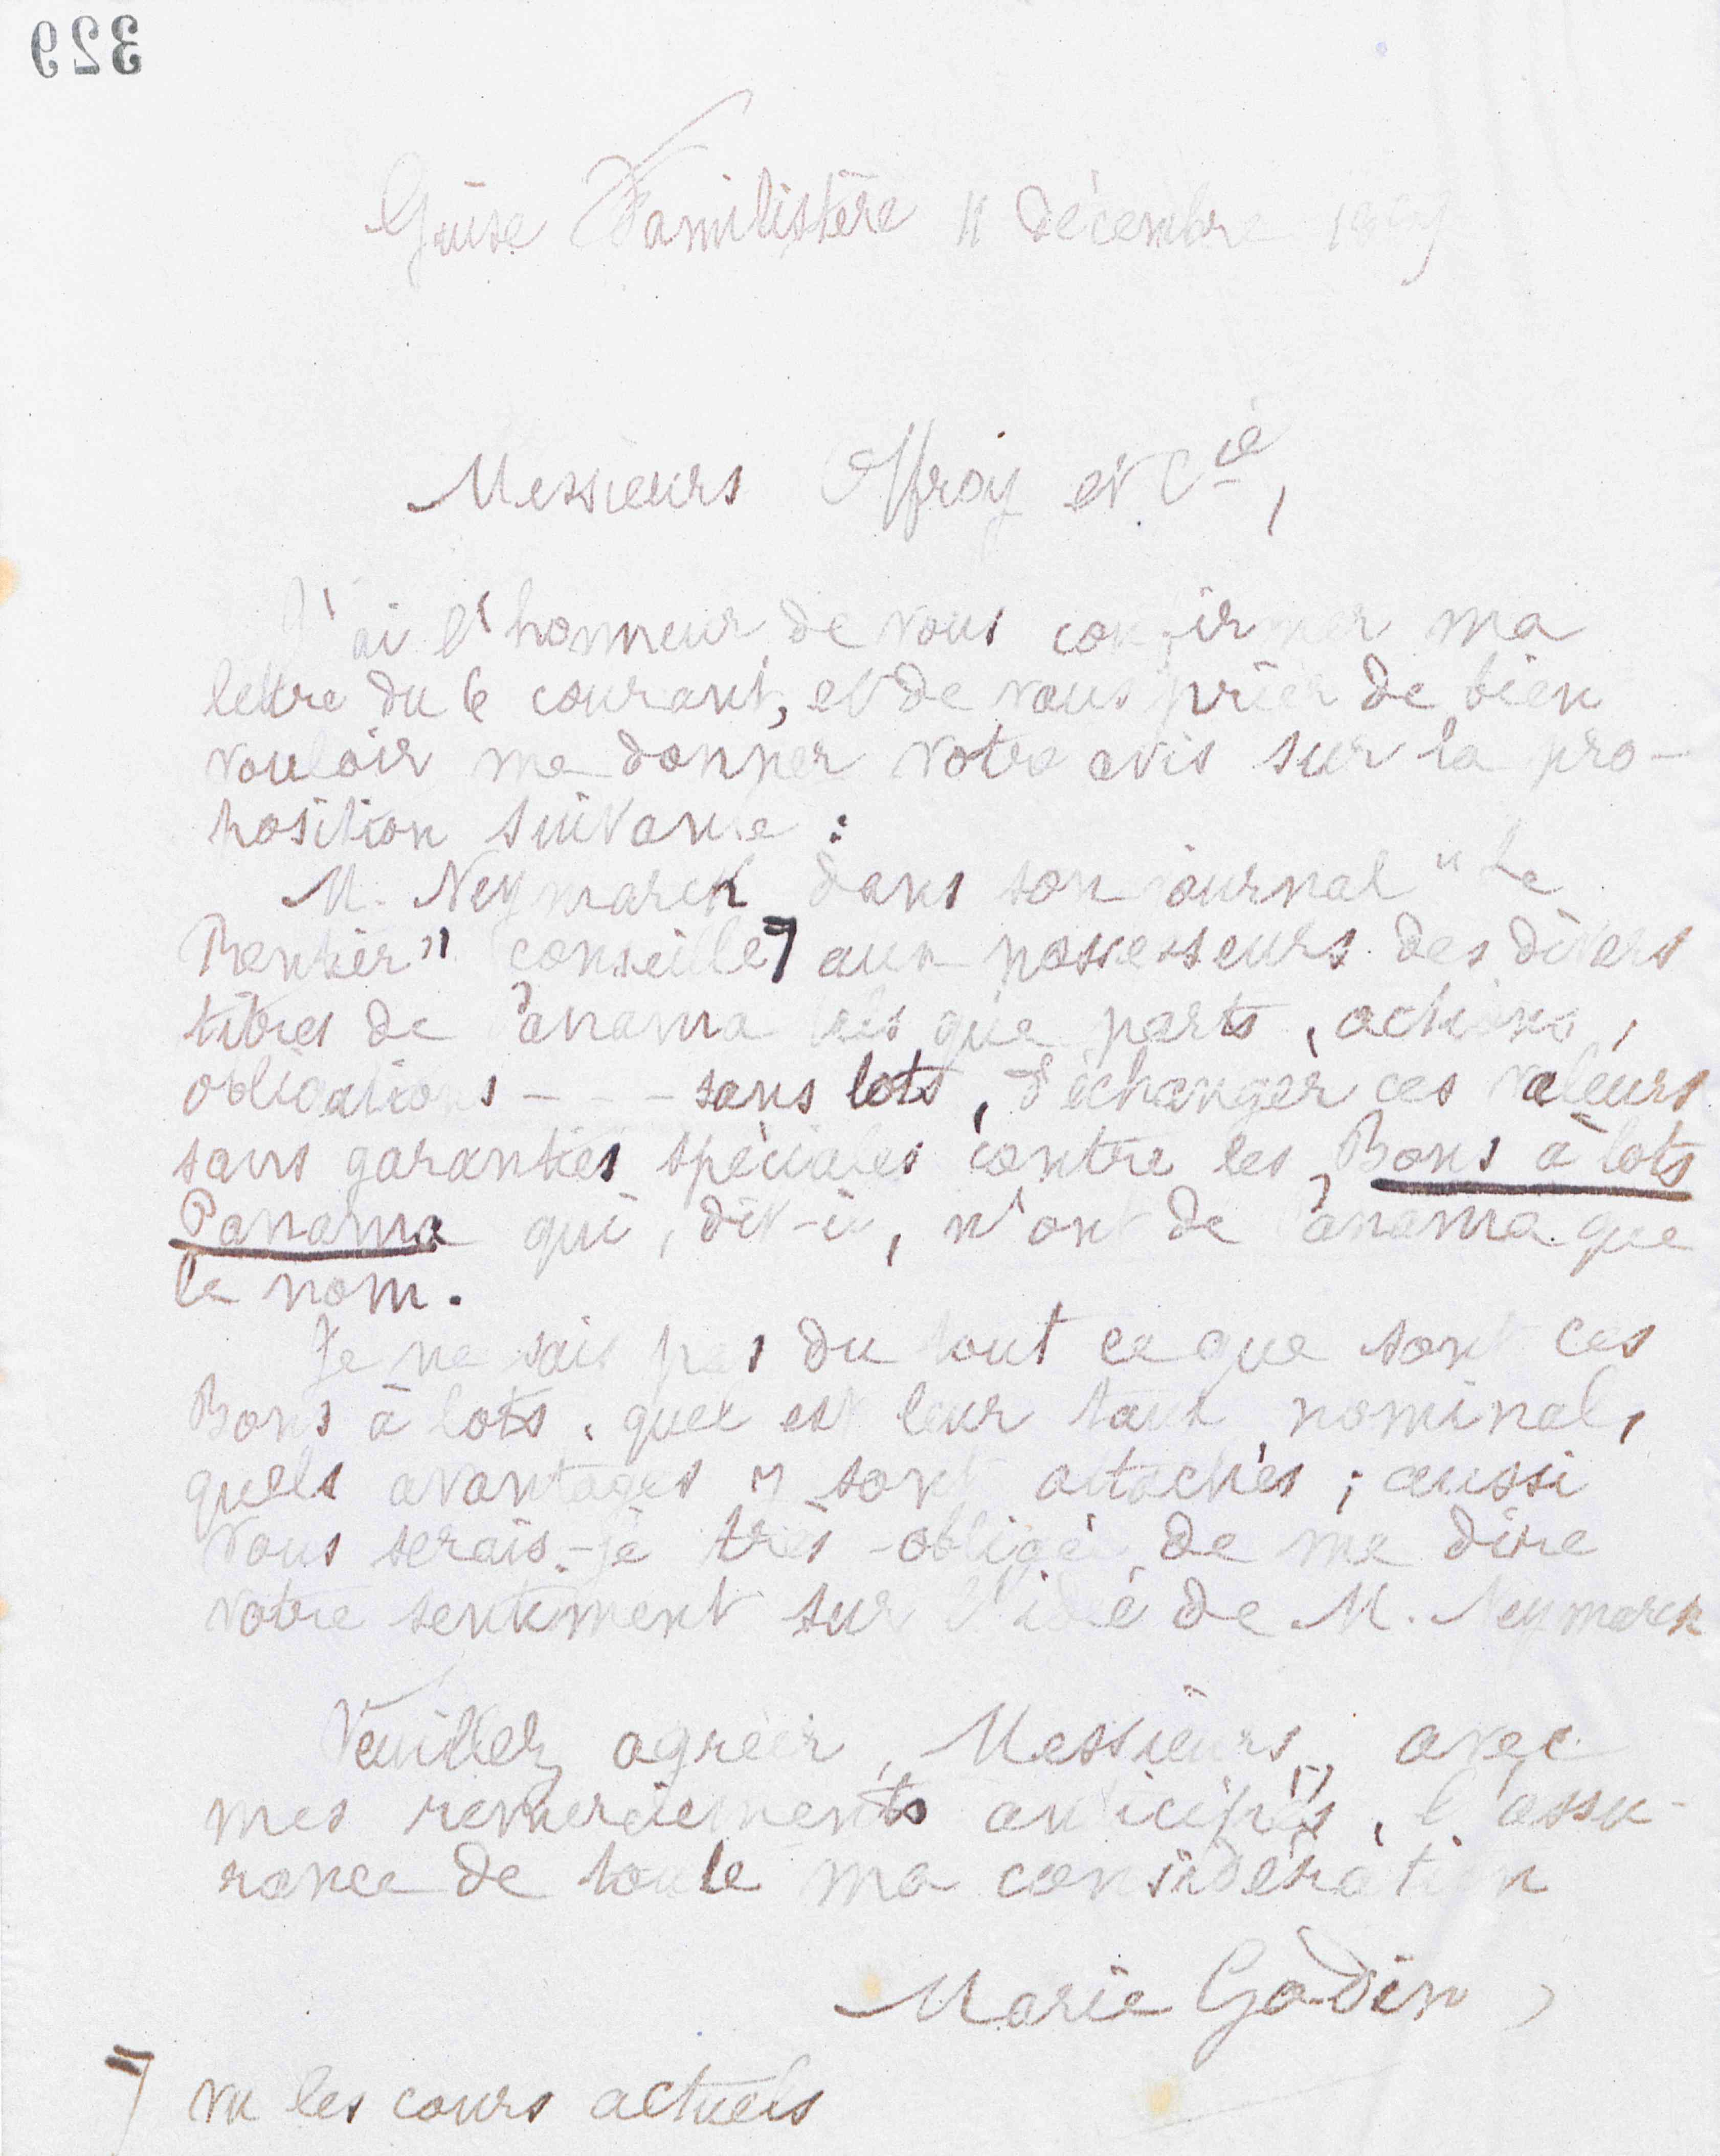 329
Guise Familistère 11 décembre
Messieurs Offroy et Cie,
J'ai l'honneur de vous confirmer ma
lettre du 6 courant, et de vous prier de bien
vouloir me donner votre avis sur la pro-
position suivante :
M. Neymarck dans son journal "Le
Rentier" conseille ⁊ aux possesseurs des divers
titres de Panama tels que parts, actions,
obligations - - - sans lots, d'échanger ces valeurs
sans garanties spéciales contre les Bons à lots
Panama qui, dit-il, n'ont de Panama que
le nom.
Je ne sais pas du tout ce que sont ces
Bons à lots, quel est leur taux nominal,
quels avantages y sont attachés ; aussi
vous serais-je très-obligée de me dire
votre sentiment sur l'idée de M. Neymarck
Veuillez agréer, Messieurs, avec
mes remerciements anticipés, l'assu-
rance de toute ma considération
Marie Godin
⁊ vu les cours actuels